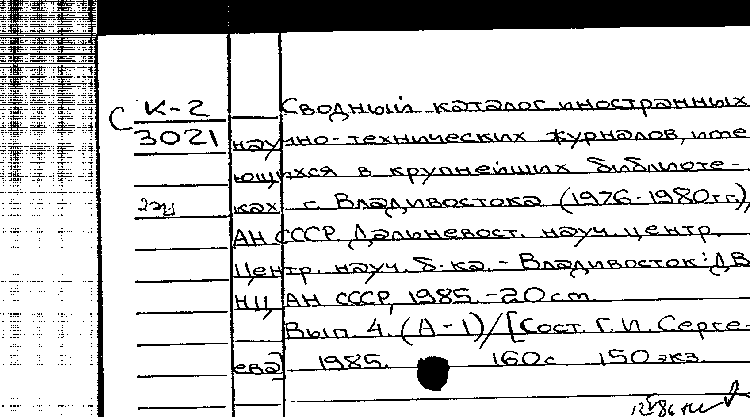 С К-2
3021
2эц
Сводный каталог иностранных
научно-технических журналов, име
ющихся в крупнейших библиоте-
ках г. Владивостока (1976-1980гг.),
АН СССР, Дальневост. науч. центр.
Центр. науч. б-ка. - Владивосток: ДВ
НЦ АН СССР, 1985. - 20 см.
Вып. 4. (A - I) / [Сост. Г. И. Серге-
ева] 1985. 160 с 150 экз.